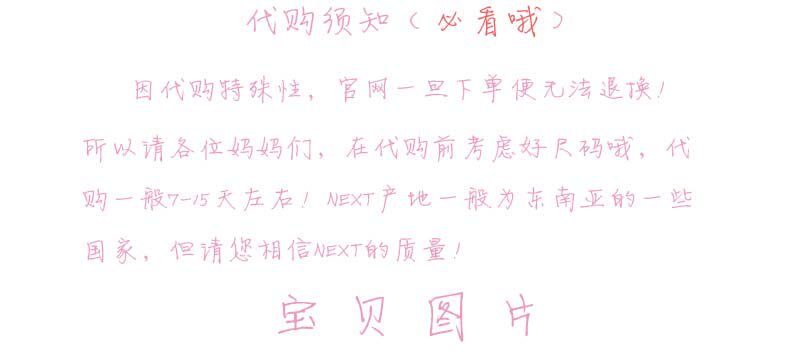 代购须知（必看哦）
因代购特殊性，官网一旦下单便无法退换！
所以请各位妈妈们，在代购前考虑好尺码哦，代
购一般7-15天左右！NEXT产地一般为东南亚的一些
国家，但请您相信NEXT的质量！
宝贝图片